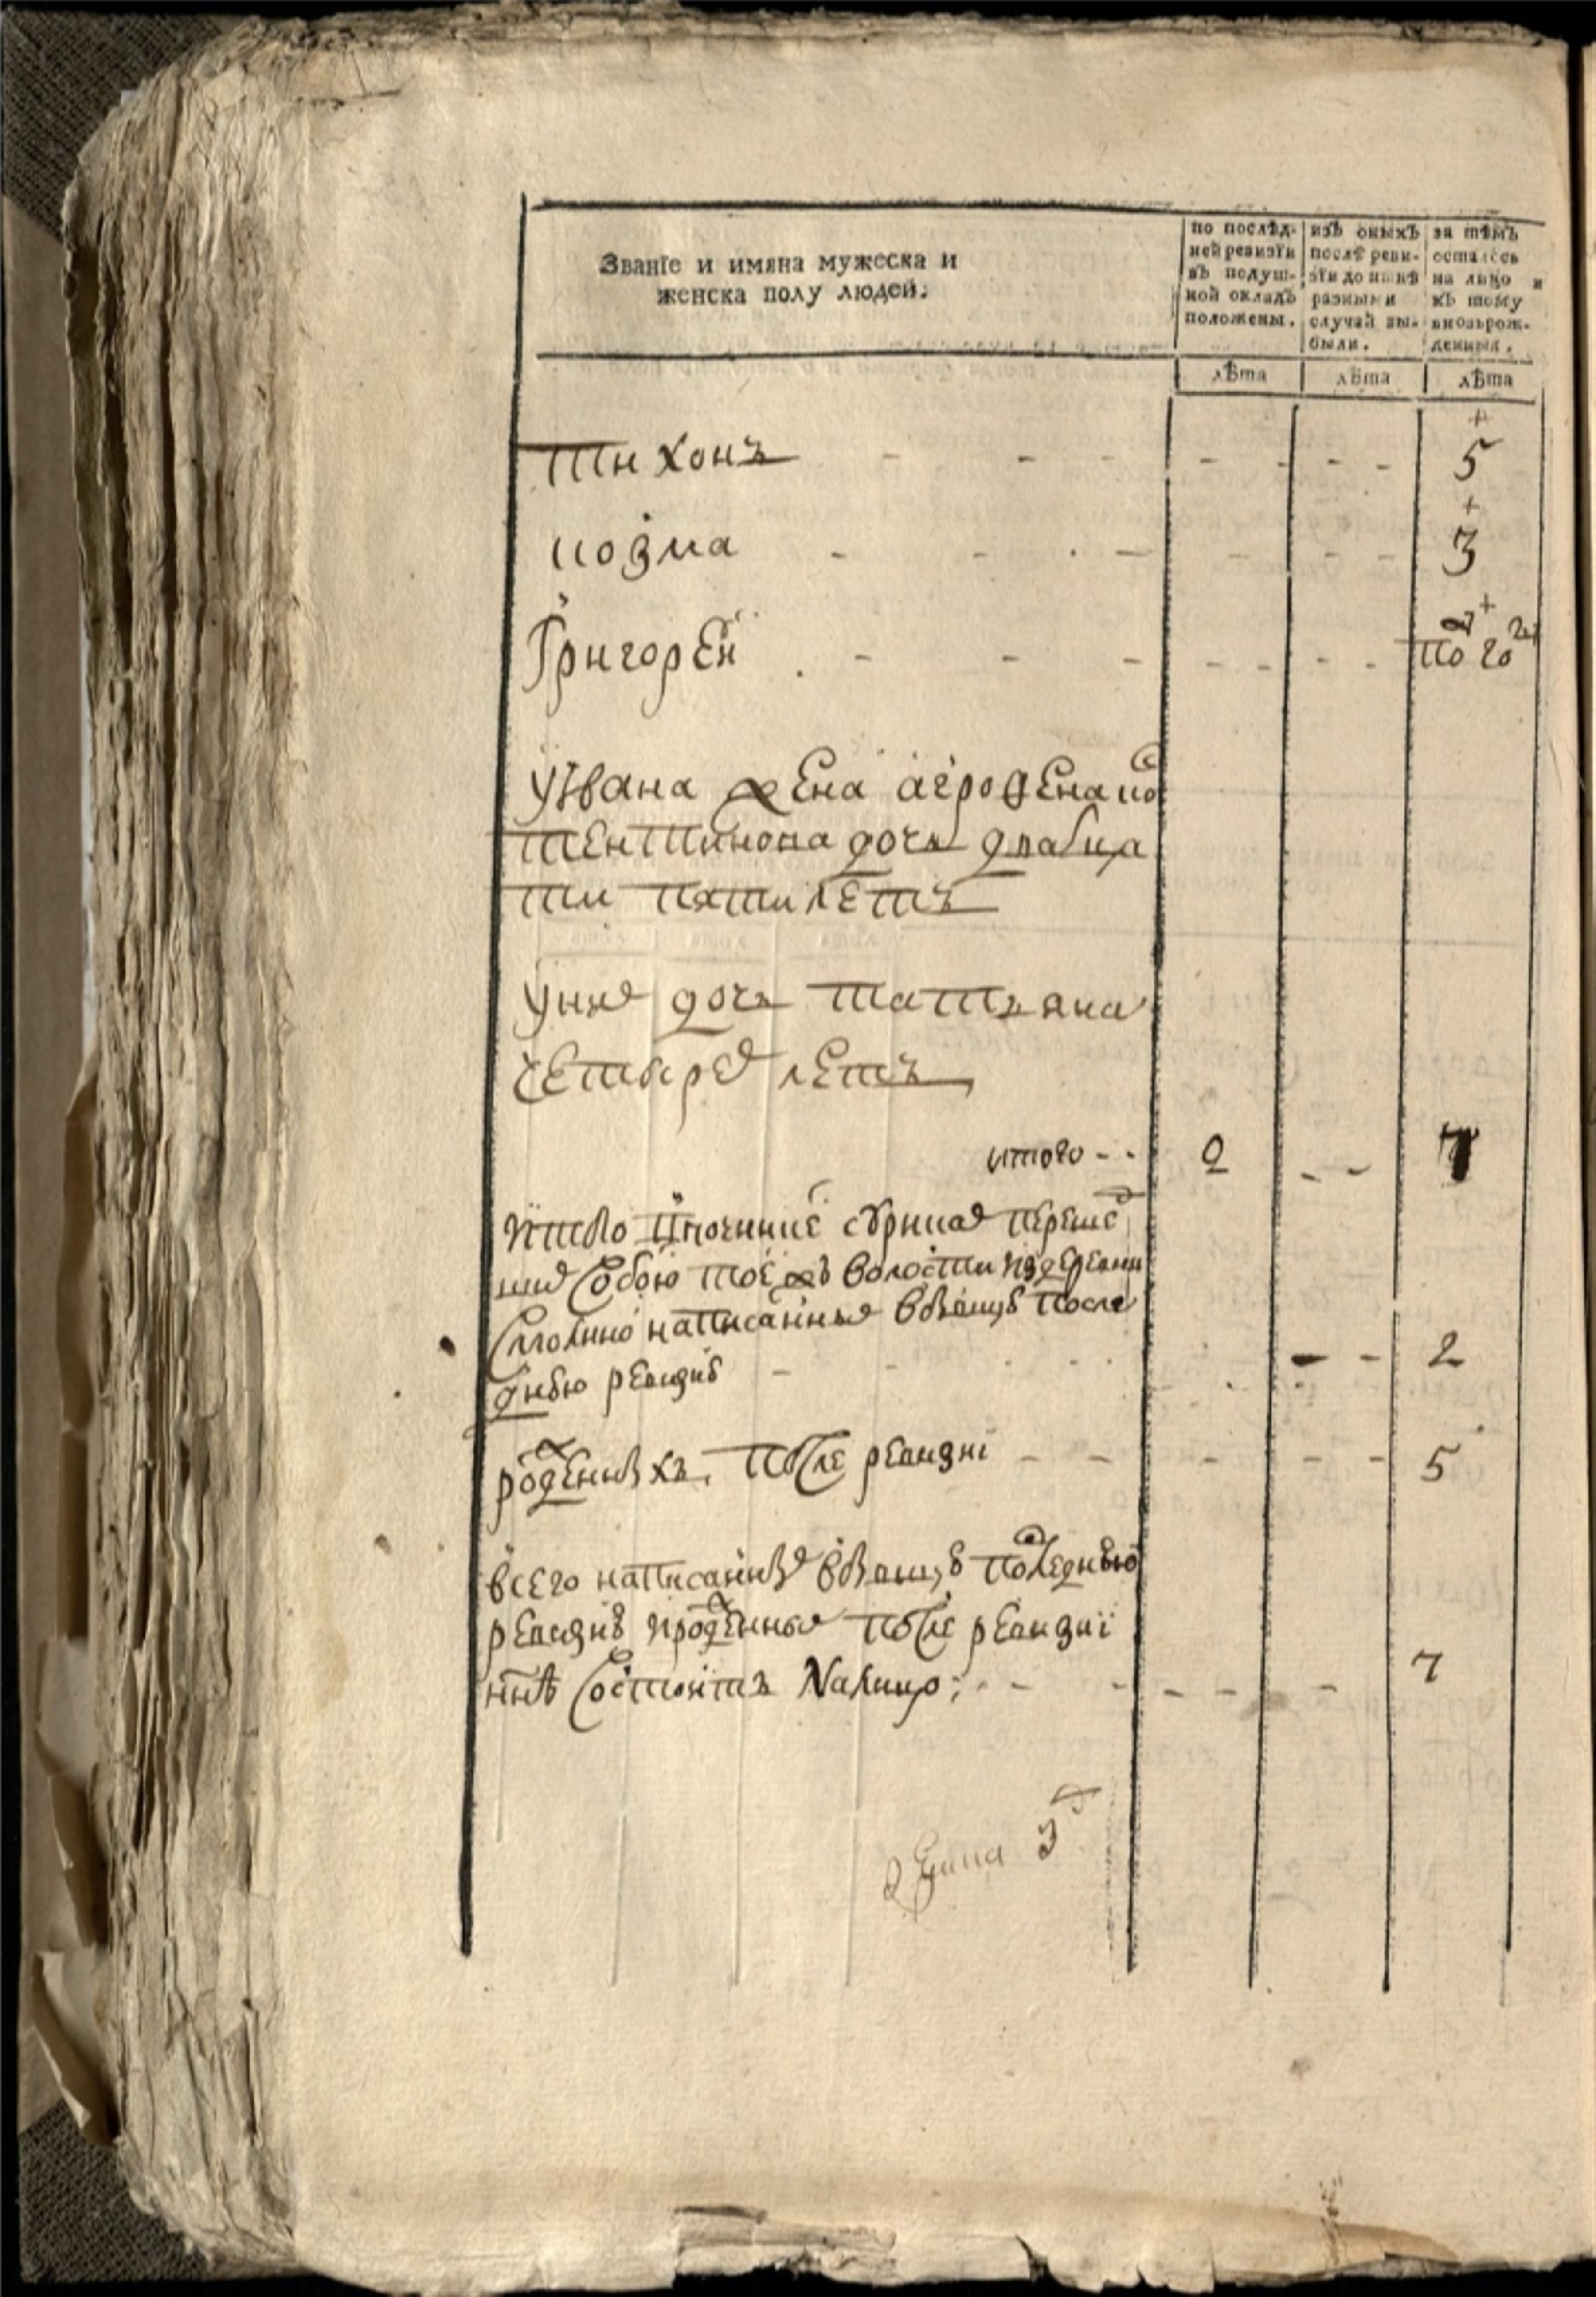 Званїе и имяна мужеска и
женска полу людей:
по послѣд-
ней ревизїи
въ подуш-
ной окладъ
положены.
изъ оныхъ
послѣ реви-
зїи до нынѣ
разными
случаи вы-
были.
за тѣмъ
осталось
на лицо и
къ тому
вновьрож-
денныя.
лѣта лѣта лѣта
тихонъ - - - - - - - 5
козма - - - - - - 3
Григорей - - - - - - - по го
Уивана жена агрофена ко
тентинова дочь дватца
ти пяти летъ
Уних дочь татьяна
четырех летъ
итого - - 2 - - 7
переше
собою тое жъ волости издеревни
написанных после
днюю ревизию - - - 2
роженныхъ после ревизиї - - - - - 5
всего написанных последнюю
ревизию ироженных после ревизиї
ннѣ состоитъ Налицо; - - - - - 7